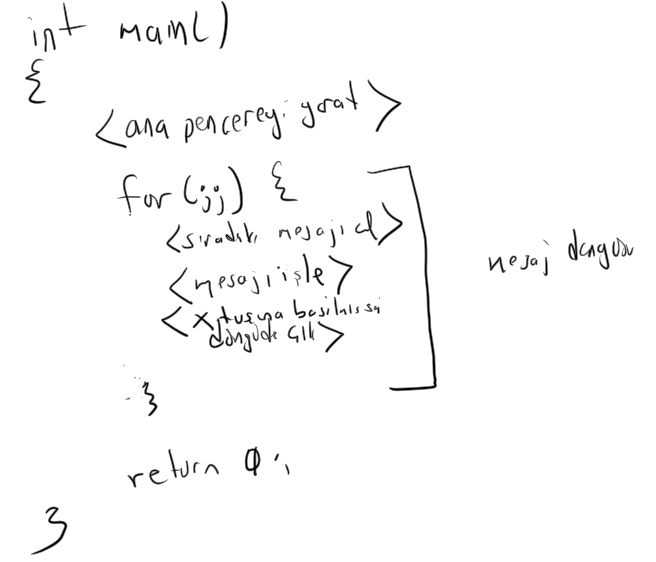 int main()
{
<ana pencereyi yarat>
for (;;) {
<sıradaki mesajı al>
<mesajı işle>
<X tuşuna basılmışsa
döngüden çık>
}
mesaj döngüsü
return 0;
}